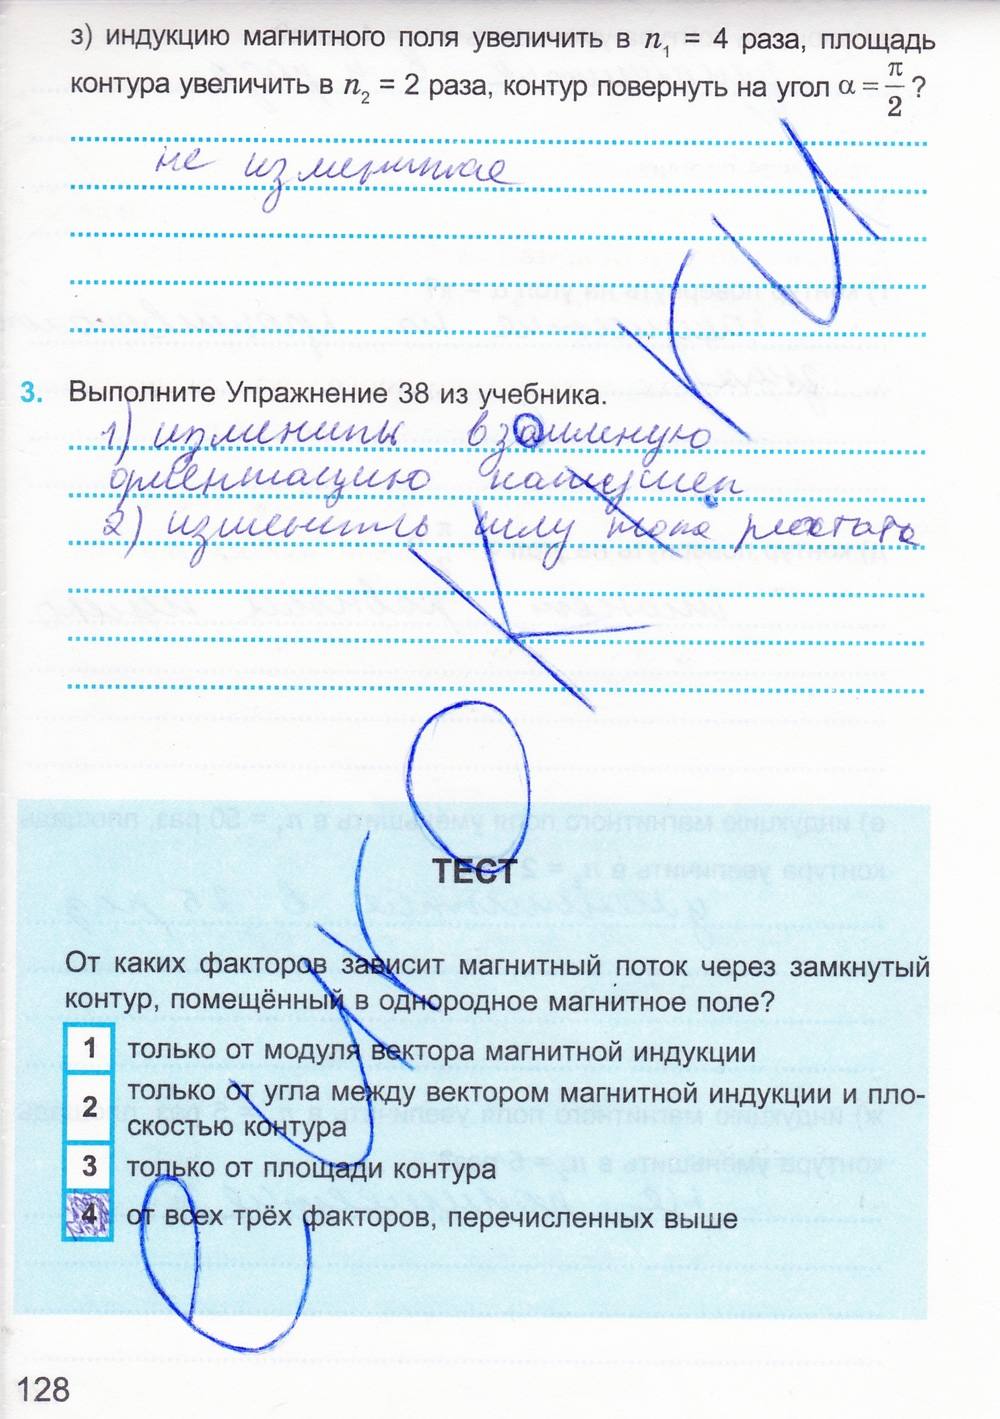 з) индукцию магнитного поля увеличить в n₁ = 4 раза, площадь
контура увеличить в n₂ = 2 раза, контур повернуть на угол α = π/2 ?
не изменится
3. Выполните Упражнение 38 из учебника.
1) изменить взаимную
ориентацию катушек
2) изменить силу тока реостата
ТЕСТ
От каких факторов зависит магнитный поток через замкнутый
контур, помещённый в однородное магнитное поле?
1 только от модуля вектора магнитной индукции
2 только от угла между вектором магнитной индукции и пло-
скостью контура
3 только от площади контура
4 от всех трёх факторов, перечисленных выше
128